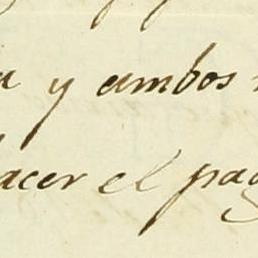 y ambos
hacer el pag